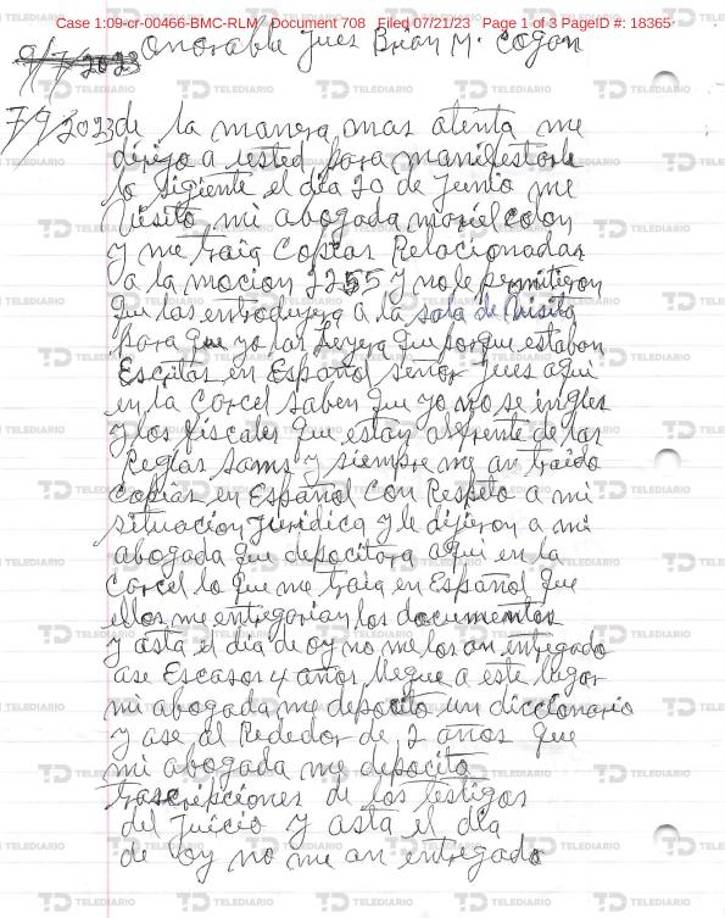 Case 1:09-cr-00466-BMC-RLM Document 708 Filed 07/21/23 Page 1 of 3 PageID #: 18365
9/7/2023 Onorable Jues Brian M. Cogan
7/9/2023 de la manera mas atenta me
dirijo a usted para manifestarle
lo sigiente el dia 20 de Junio me
visito mi abogada mariel colon
y me traia Copias Relacionadas
a la mocion 2255 y no le permitieron
que las introdujera a la sala de visita
para que yo las Leyera que porque estaban
Escritas en Español señor jues aqui
en la Carcel saben que yo no se ingles
y los fiscales que estan al frente de las
Reglas Sams y siempre me an traido
Copias en Español Con Respeto a mi
situacion juridica y le dijeron a mi
abogada que depocitara aqui en la
Carcel lo que me traia en Español que
ellos me entregarian los documentos
y asta el dia de oy no me los an entregado
ase Escasos 4 años llegue a este lugar
mi abogada me depocito un diccionario
y ase al Rededor de 2 años que
mi abogada me depocito
trascripciones de los testigos
del Juicio y asta el dia
de oy no me an entregado
TELEDIARIO